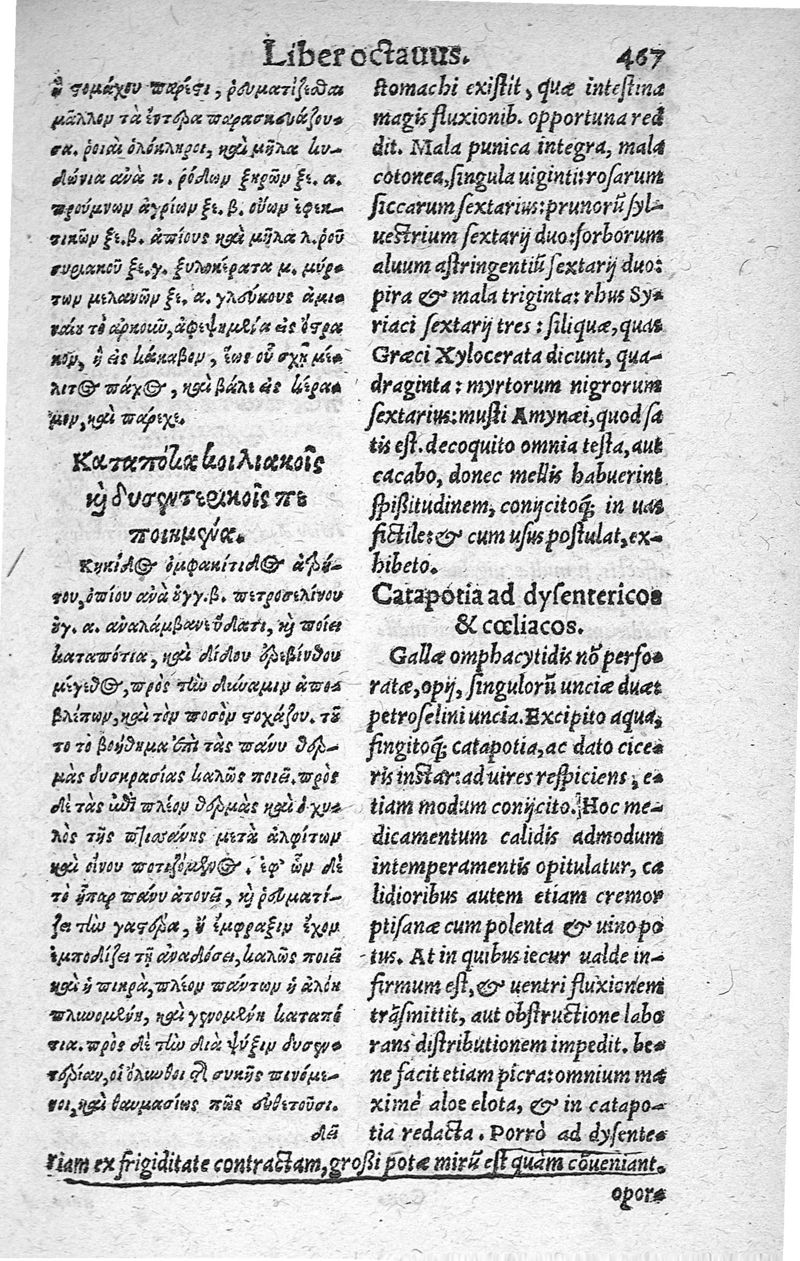 Liber octauus. 467
ἢ στομάχου πάρεσι, ῥευματίζεσθαι
μᾶλλον τὰ ἔντερα παρασκευάζου-
σα. ῥοιαὶ ὁλόκληροι, καὶ μῆλα κυ-
δώνια ἀνὰ κ. ῥόδων ξηρῶν ξε. α.
προύμνων ἀγρίων ξε. β. οὔων ἐφεκ-
τικῶν ξε. β. ἀπίους καὶ μῆλα λ. ῥοῦ
συριακοῦ ξε. γ. ξυλοκέρατα μ. μύρ-
των μελανῶν ξε. α. γλούκους ἀμι-
ναίου τὸ ἀρκοιῶ, ἀφεψημεῖα εἰς ὄστρα
κον, ἢ εἰς κάκαβον, ἕως οὗ σχῇ μέ-
λιτος πάχος, καὶ βάλε εἰς κέρα-
μον, καὶ πάρεχε.
Καταπότια κοιλιακοῖς
κỳ δυσεντερικοῖς πε
ποιημένα.
Κηκῖδος ὀμφακίτιδος ἀτρή-
του, ὀπίου ἀνὰ ὐγγ. β. πετροσελίνου
ὐγ. α. ἀναλάμβανε ὕδατι, καὶ ποίει
καταπότια, καὶ δίδου ὀρεβίνθου
μέγεθος, πρὸς τὴν δύναμιν ἀπο-
βλέπων, καὶ τὸν ποσὸν στοχάζου. τοῦ
το τὸ βοήθημα ἐπὶ τὰς πάνυ θερ-
μὰς δυσκρασίας καλῶς ποιεῖ. πρὸς
δὲ τὰς ἐπὶ πλέον θερμὰς καὶ ὁ χυ-
λὸς τῆς πτισάνης μετὰ ἀλφίτων
καὶ οἴνου ποτιζόμενος. ἐφ' ὧν δὲ
τὸ ἧπαρ πάνυ ἀτονεῖ, καὶ ῥευματί-
ζει τὴν γαστέρα, ἢ ἔμφραξιν ἔχον
ἐμποδίζει τῇ ἀναδόσει, καλῶς ποιεῖ
καὶ ἡ πικρὰ, πλέον πάντων ἡ ἀλόη
πλυνομένη, καὶ γενομένη καταπό
τια. πρὸς δὲ τὴν διὰ ψύξιν δυσεν-
τερίαν, οἱ ὄλυνθοι τῆς συκῆς πινόμε-
νοι, καὶ θαυμασίως πῶς συντετοῦσι.
δεῖ
stomachi existit, quæ intestina
magis fluxionib. opportuna red
dit. Mala punica integra, mala
cotonea, singula uiginti: rosarum
siccarum sextarius: prunorũ syl-
uestrium sextarij duo: sorborum
aluum astringentiũ sextarij duo:
pira & mala triginta: rhus Sy-
riaci sextarij tres: siliquæ, quas
Græci Xylocerata dicunt, qua-
draginta: myrtorum nigrorum
sextarius: musti Amynæi, quod sa
tis est. decoquito omnia testa, aut
cacabo, donec mellis habuerint
spissitudinem, conijcitoq; in uas
fictile: & cum usus postulat, ex-
hibeto.
Catapotia ad dysentericos
& cœliacos.
Gallæ omphacytidis nõ perfo-
ratæ, opij, singulorũ unciæ duæ:
petroselini uncia. Excipito aqua,
fingitoq; catapotia, ac dato cice-
ris instar: ad uires respiciens, e-
tiam modum conijcito. Hoc me-
dicamentum calidis admodum
intemperamentis opitulatur, ca
lidioribus autem etiam cremor
ptisanæ cum polenta & uino po
tus. At in quibus iecur ualde in-
firmum est, & uentri fluxionem
trãsmittit, aut obstructione labo
rans distributionem impedit. be-
ne facit etiam picra: omnium ma
ximè aloe elota, & in catapo-
tia redacta. Porrò ad dysente-
riam ex frigiditate contractam, grossi potæ mirũ est quàm cõueniant.
opor-